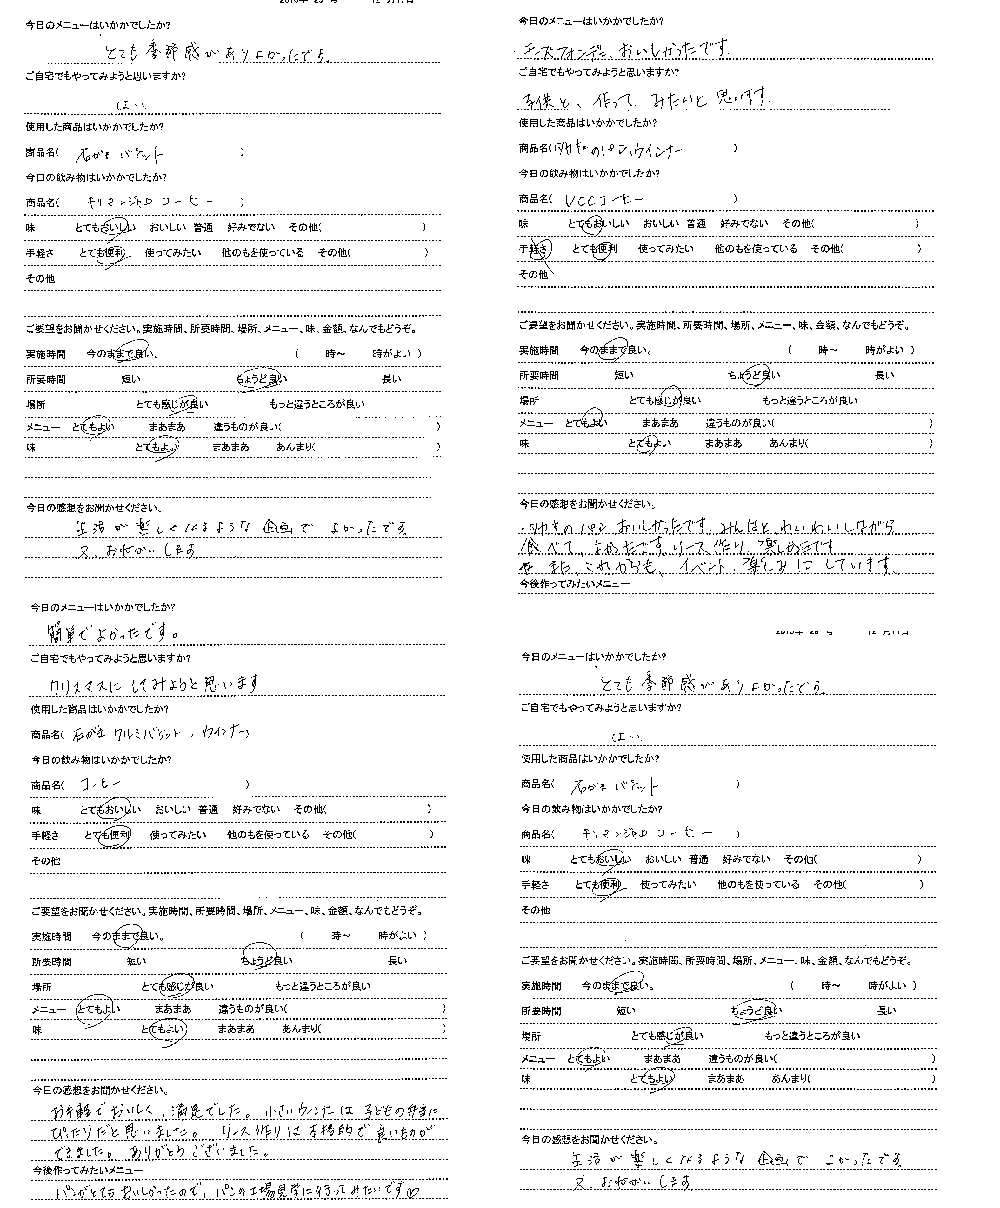 今日のメニューはいかかでしたか?
とても季節感がありよかったです
ご自宅でもやってみようと思いますか?
はい
使用した商品はいかかでしたか?
商品名( 石がま バケット )
今日の飲み物はいかかでしたか?
商品名( キリマンジャロ コーヒー )
味 とてもおいしい おいしい 普通 好みでない その他( )
手軽さ とても便利 使ってみたい 他のもを使っている その他( )
その他
ご要望をお聞かせください。実施時間、所要時間、場所、メニュー、味、金額、なんでもどうぞ。
実施時間 今のままで良い、 ( 時～ 時がよい )
所要時間 短い ちょうど良い 長い
場所 とても感じが良い もっと違うところが良い
メニュー とてもよい まあまあ 違うものが良い( )
味 とてもよい まあまあ あんまり( )
今日の感想をお聞かせください。
生活が楽しくなるような企画でよかったです
又、おねがいします
今日のメニューはいかかでしたか?
簡単でよかったです。
ご自宅でもやってみようと思いますか?
クリスマスにしてみようと思います
使用した商品はいかかでしたか?
商品名( 石がま クルミバケット、ウインナー)
今日の飲み物はいかかでしたか?
商品名( コーヒー )
味 とてもおいしい おいしい 普通 好みでない その他( )
手軽さ とても便利 使ってみたい 他のもを使っている その他( )
その他
ご要望をお聞かせください。実施時間、所要時間、場所、メニュー、味、金額、なんでもどうぞ。
実施時間 今のままで良い。 ( 時～ 時がよい )
所要時間 短い ちょうど良い 長い
場所 とても感じが良い もっと違うところが良い
メニュー とてもよい まあまあ 違うものが良い( )
味 とてもよい まあまあ あんまり( )
今日の感想をお聞かせください。
お手軽でおいしく、満足でした。小さいウィンナーは子どもの弁当に
ぴったりだと思いました。リース作りは本格的で良いものが
できました。ありがとうございました。
今後作ってみたいメニュー
パンがとてもおいしかったので、パンの工場見学に行ってみたいです♡
今日のメニューはいかかでしたか?
チーズフォンデュ、おいしかったです。
ご自宅でもやってみようと思いますか?
子供と、作って みたいと 思います。
使用した商品はいかかでしたか?
商品名( のパン、ウインナー )
今日の飲み物はいかかでしたか?
商品名( UCCコーヒー )
味 とてもおいしい おいしい 普通 好みでない その他( )
手軽さ とても便利 使ってみたい 他のもを使っている その他( )
その他
ご要望をお聞かせください。実施時間、所要時間、場所、メニュー、味、金額、なんでもどうぞ。
実施時間 今のままで良い、 ( 時～ 時がよい )
所要時間 短い ちょうど良い 長い
場所 とても感じが良い もっと違うところが良い
メニュー とてもよい まあまあ 違うものが良い( )
味 とてもよい まあまあ あんまり( )
今日の感想をお聞かせください。
のパン おいしかったです。みんなと、わいわいしながら
食べて、よかったです。リース作り、楽しめたです
また、これからも、イベント、楽しみにしています。
今後作ってみたいメニュー
今日のメニューはいかかでしたか?
とても季節感がありよかったです
ご自宅でもやってみようと思いますか?
はい
使用した商品はいかかでしたか?
商品名( 石がま バケット )
今日の飲み物はいかかでしたか?
商品名( キリマンジャロ コーヒー )
味 とてもおいしい おいしい 普通 好みでない その他( )
手軽さ とても便利 使ってみたい 他のもを使っている その他( )
その他
ご要望をお聞かせください。実施時間、所要時間、場所、メニュー、味、金額、なんでもどうぞ。
実施時間 今のままで良い。 ( 時～ 時がよい )
所要時間 短い ちょうど良い 長い
場所 とても感じが良い もっと違うところが良い
メニュー とてもよい まあまあ 違うものが良い( )
味 とてもよい まあまあ あんまり( )
今日の感想をお聞かせください。
生活が楽しくなるような企画でよかったです
又、おねがいします